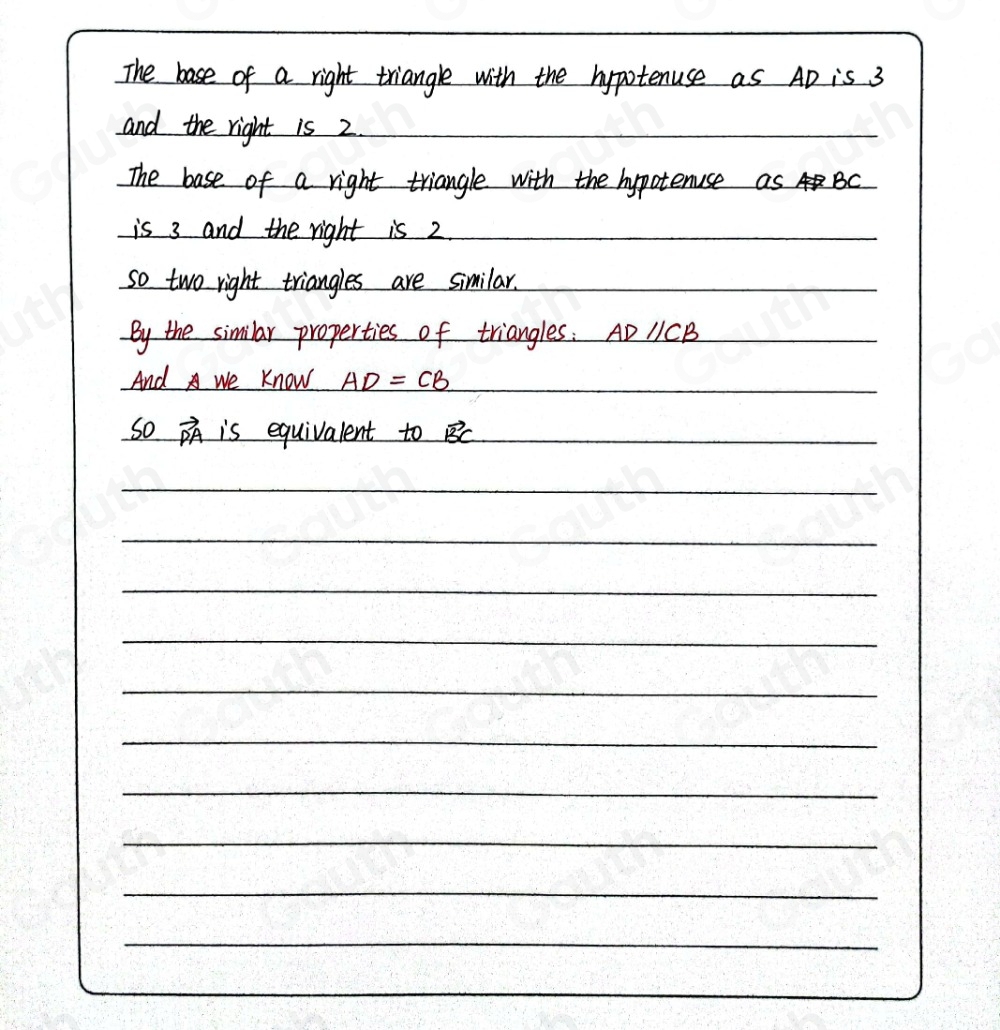 The base of a right triangle with the hypotenuse as AD is 3
and the right is 2.
The base of a right triangle with the hypotenuse as BC
is 3 and the right is 2.
So two right triangles are similar.
By the similar properties of triangles: AD // CB
And we know AD = CB
So \overrightarrow{DA} is equivalent to \overrightarrow{BC}
Gauth